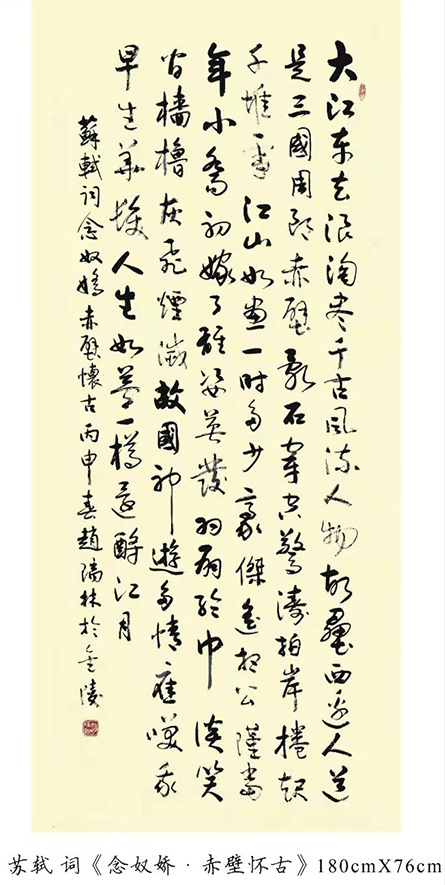 大江東去浪淘盡千古風流人物故壘西邊人道
是三國周郎赤壁亂石穿空驚濤拍岸捲起
千堆雪江山如畫一時多少豪傑遙想公瑾當
年小喬初嫁了雄姿英發羽扇綸巾談笑
間檣櫓灰飛煙滅故國神遊多情應笑我
早生華髮人生如夢一樽還酹江月
蘇軾詞念奴嬌赤壁懷古丙申春趙林於金陵
苏轼 词《念奴娇·赤壁怀古》180cmX76cm